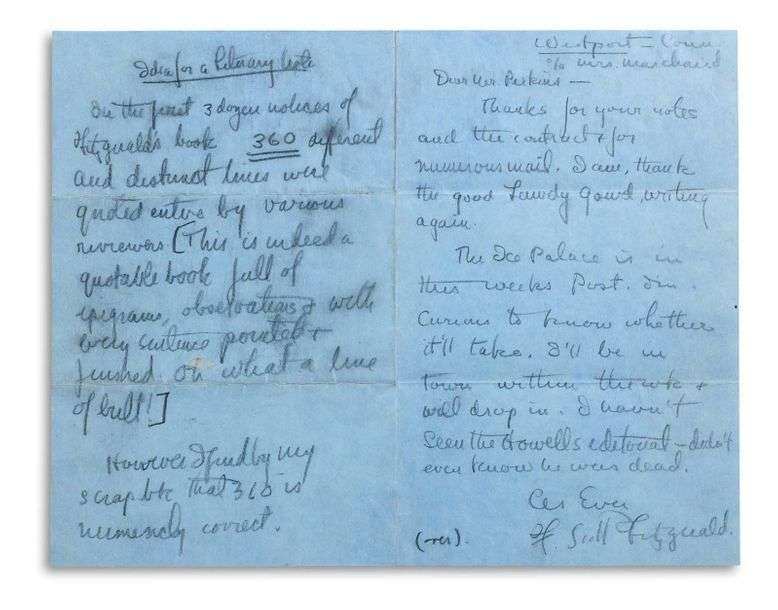 Idea for a Literary Note
In the first 3 dozen notices of
Fitzgerald's book 360 different
and distinct lines were
quoted entire by various
reviewers [This is indeed a
quotable book full of
epigrams, observations & with
every sentence pointed &
finished. Oh what a line
of bull!]
However I find by my
scrap bk that 360 is
numericly correct.
Westport – Conn
c/o Mrs. Marchand
Dear Mr. Perkins –
Thanks for your notes
and the contract & for
numerous mail. I am, thank
the good Lawdy Gawd, writing
again.
The Ice Palace is in
this weeks Post. I'm
curious to know whether
it'll take. I'll be in
town within the wk &
will drop in. I havn't
seen the Howells editorial – didn't
even know he was dead.
As Ever
(over).
F. Scott Fitzgerald.